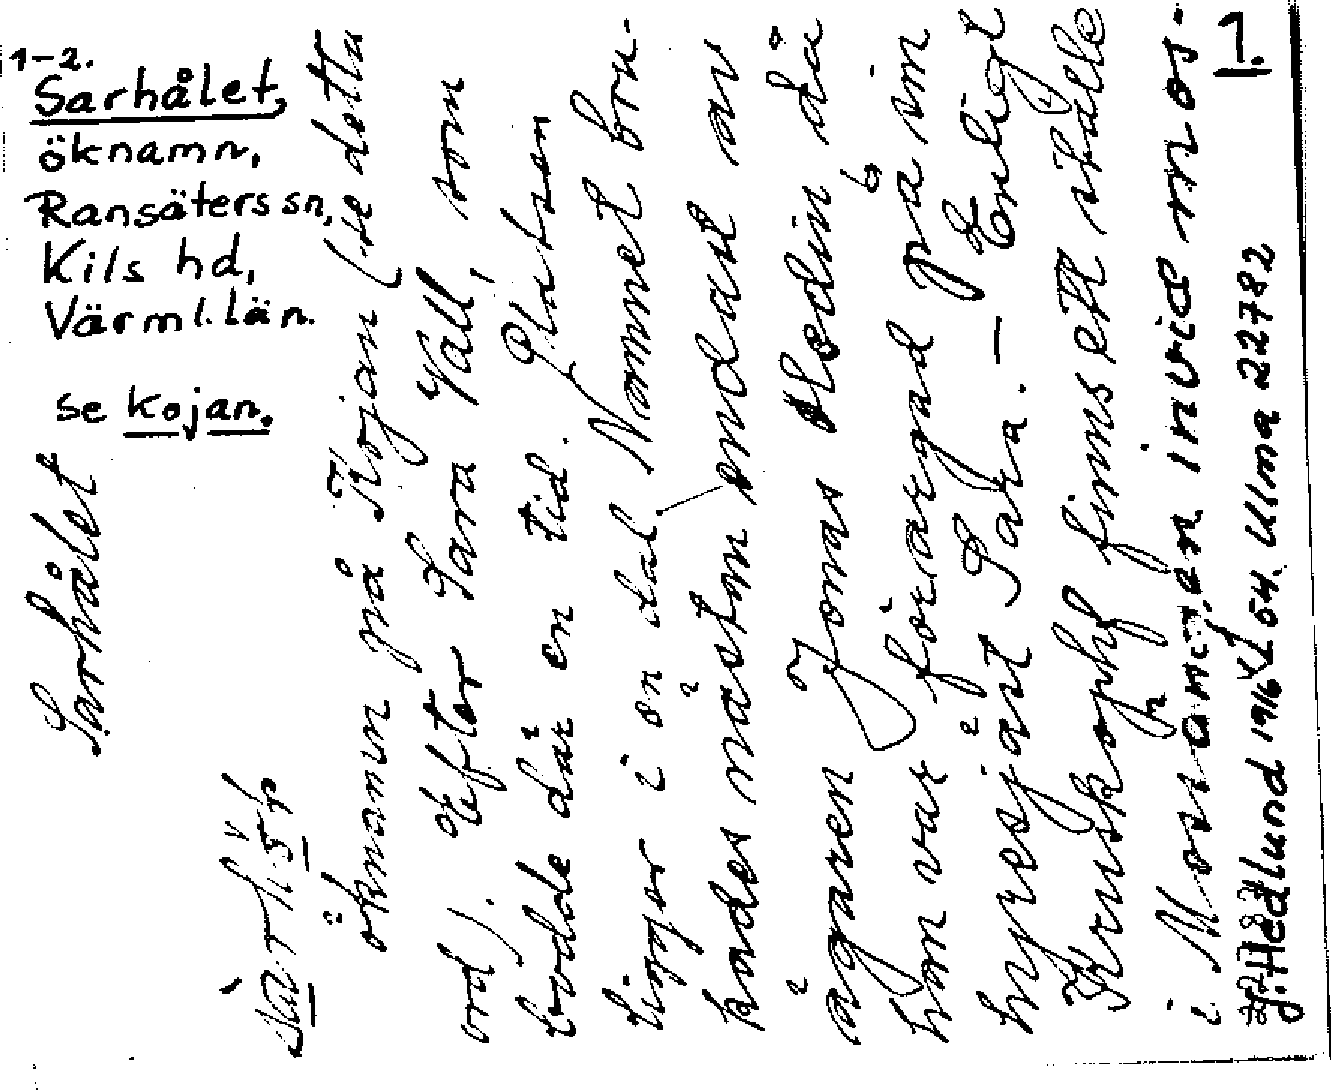 1-2.
Sarhålet,
öknamn,
Ransäters sn,
Kils hd,
Värml. län.
se Kojan.
1.
Sarhålet
öknamn på Kojan (se detta
ord). Efter Sara Vall, som
bodde där en tid. Platsen
ligger i en dal. Namnet bru-
kades nästan endast av
ägaren Jonas Hodin då
han var förargad på sin
hyresgäst Sara. — Enligt
Kruskopf finns ett ställe
i Mon invid mos-
J. Hedlund 1916 54. Ulma 22782